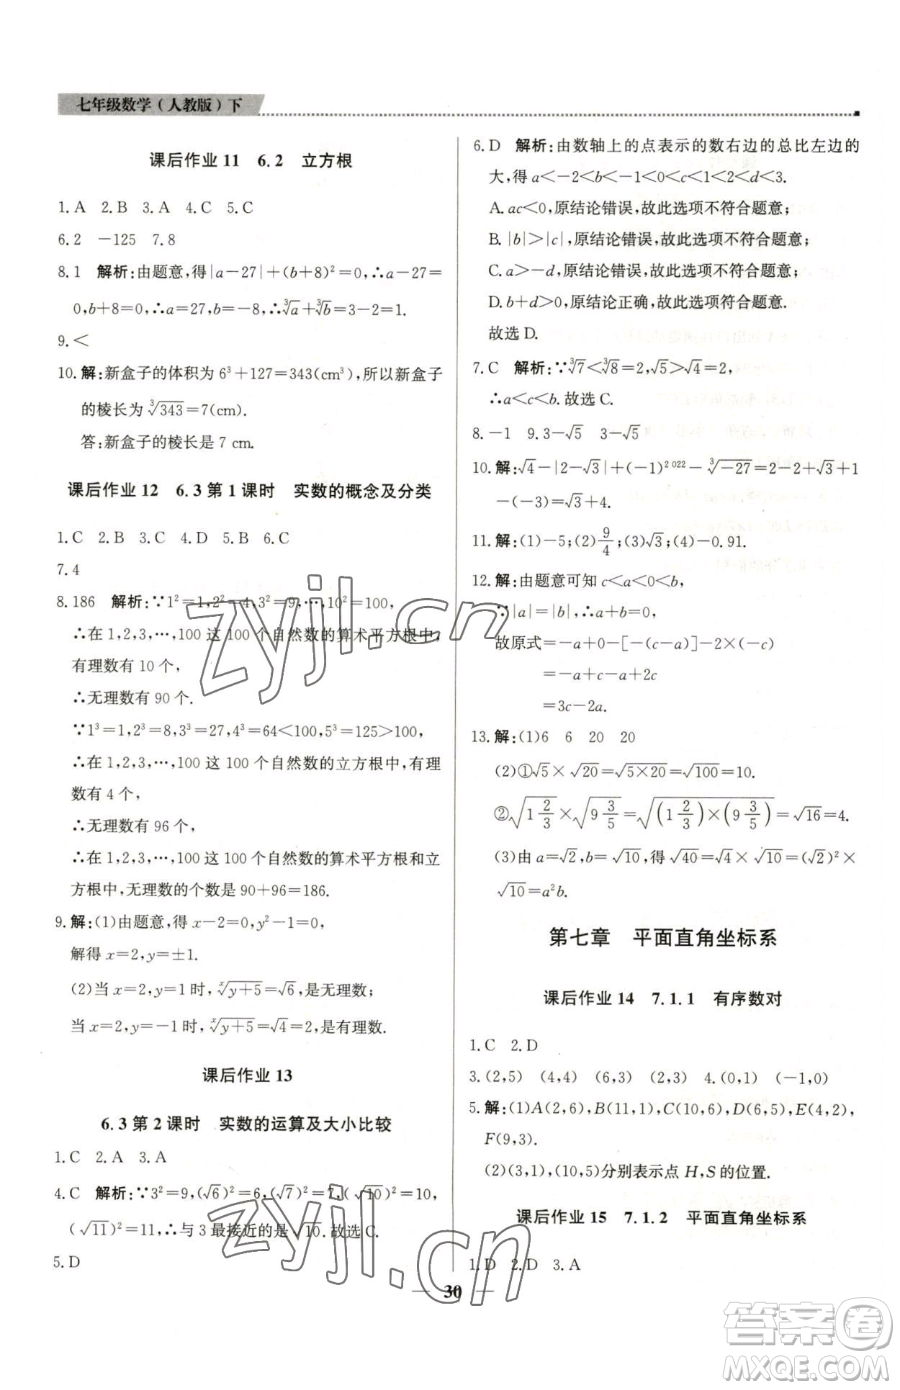 七年级数学(人教版)下
课后作业 11　6.2　立方根
1.A　2.B　3.A　4.C　5.C
6.2　-125　7.8
8.1　解析:由题意,得|a-27|+(b+8)²=0,∴a-27=
0,b+8=0,∴a=27,b=-8,∴∛a+∛b=3-2=1.
9.<
10.解:新盒子的体积为 6³+127=343(cm³),所以新盒子
的棱长为∛343=7(cm).
答:新盒子的棱长是 7 cm.
课后作业 12　6.3 第 1 课时　实数的概念及分类
1.C　2.B　3.C　4.D　5.C　6.C
7.4
8.186　解析:∵1²=1,2²=4,3²=9,…,10²=100,
∴在 1,2,3,…,100 这 100 个自然数的算术平方根中,
有理数有 10 个,
∴无理数有 90 个.
∵1³=1,2³=8,3³=27,4³=64<100,5³=125>100,
∴在 1,2,3,…,100 这 100 个自然数的立方根中,有理
数有 4 个,
∴无理数有 96 个,
∴在 1,2,3,…,100 这 100 个自然数的算术平方根和立
方根中,无理数的个数有 90+96=186.
9.解:(1)由题意,得 x-2=0,y²-1=0,
解得 x=2,y=±1.
(2)当 x=2,y=1 时,ˣ√(y+5)=√6,是无理数;
当 x=2,y=-1 时,ˣ√(y+5)=√4=2,是有理数.
课后作业 13
6.3 第 2 课时　实数的运算及大小比较
1.C　2.A　3.A
4.C　解析:∵3²=9,(√6)²=6,(√7)²=7,(√10)²=10,
(√11)²=11,∴与 3 最接近的是√10.故选 C.
5.D
6.D　解析:由数轴上的点表示的数右边的总比左边的
大,得 a<-2<b<-1<0<c<1<2<d<3.
A.ac<0,原结论错误,故此选项不符合题意;
B.|b|>|c|,原结论错误,故此选项不符合题意;
C.a>-d,原结论错误,故此选项不符合题意;
D.b+d>0,原结论正确,故此选项符合题意.
故选 D.
7.C　解析:∵∛7<∛8=2,√5>√4=2,
∴a<c<b.故选 C.
8.-1　9.3-√5　3-√5
10.解:√4-|2-√3|+(-1)²⁰²²-∛-27=2-2+√3+1
-(-3)=√3+4.
11.解:(1)-5;(2)9/4;(3)√3;(4)-0.91.
12.解:由题意可知 c<a<0,b>0,
∵|a|=|b|,∴a+b=0,
故原式=-a+0-[-(-c-a)]-2×(-c)
=-a-c-a+2c+2c
=3c-2a.
13.解:(1)6　6　20　20
(2)①√5×√20=√(5×20)=√100=10.
②√(1 2/3)×√(9 3/5)=√((1 2/3)×(9 3/5))=√16=4.
(3)由 a=√2,b=√10,得√40=√2×√2×√10=(√2)²×
√10=a²b.
第七章　平面直角坐标系
课后作业 14　7.1.1　有序数对
1.C　2.D
3.(2,5)　(4,4)　(6,3)　4.(0,1)　(-1,0)
5.解:(1)A(2,6),B(11,4),D(6,5),E(4,2),
F(9,3).
(2)(3,1),(10,5)分别表示点 H,S 的位置.
课后作业 15　7.1.2　平面直角坐标系
1.D　2.D　3.A
30
zyjl.cn
zyjl.cn
答案圈
MXQE.COM